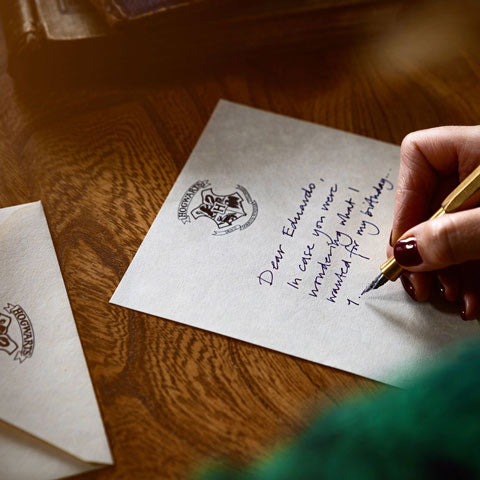 HOGWARTS
Dear Eduardo,
In case you were
wondering what I
wanted for my birthday...
1.
HOGWARTS